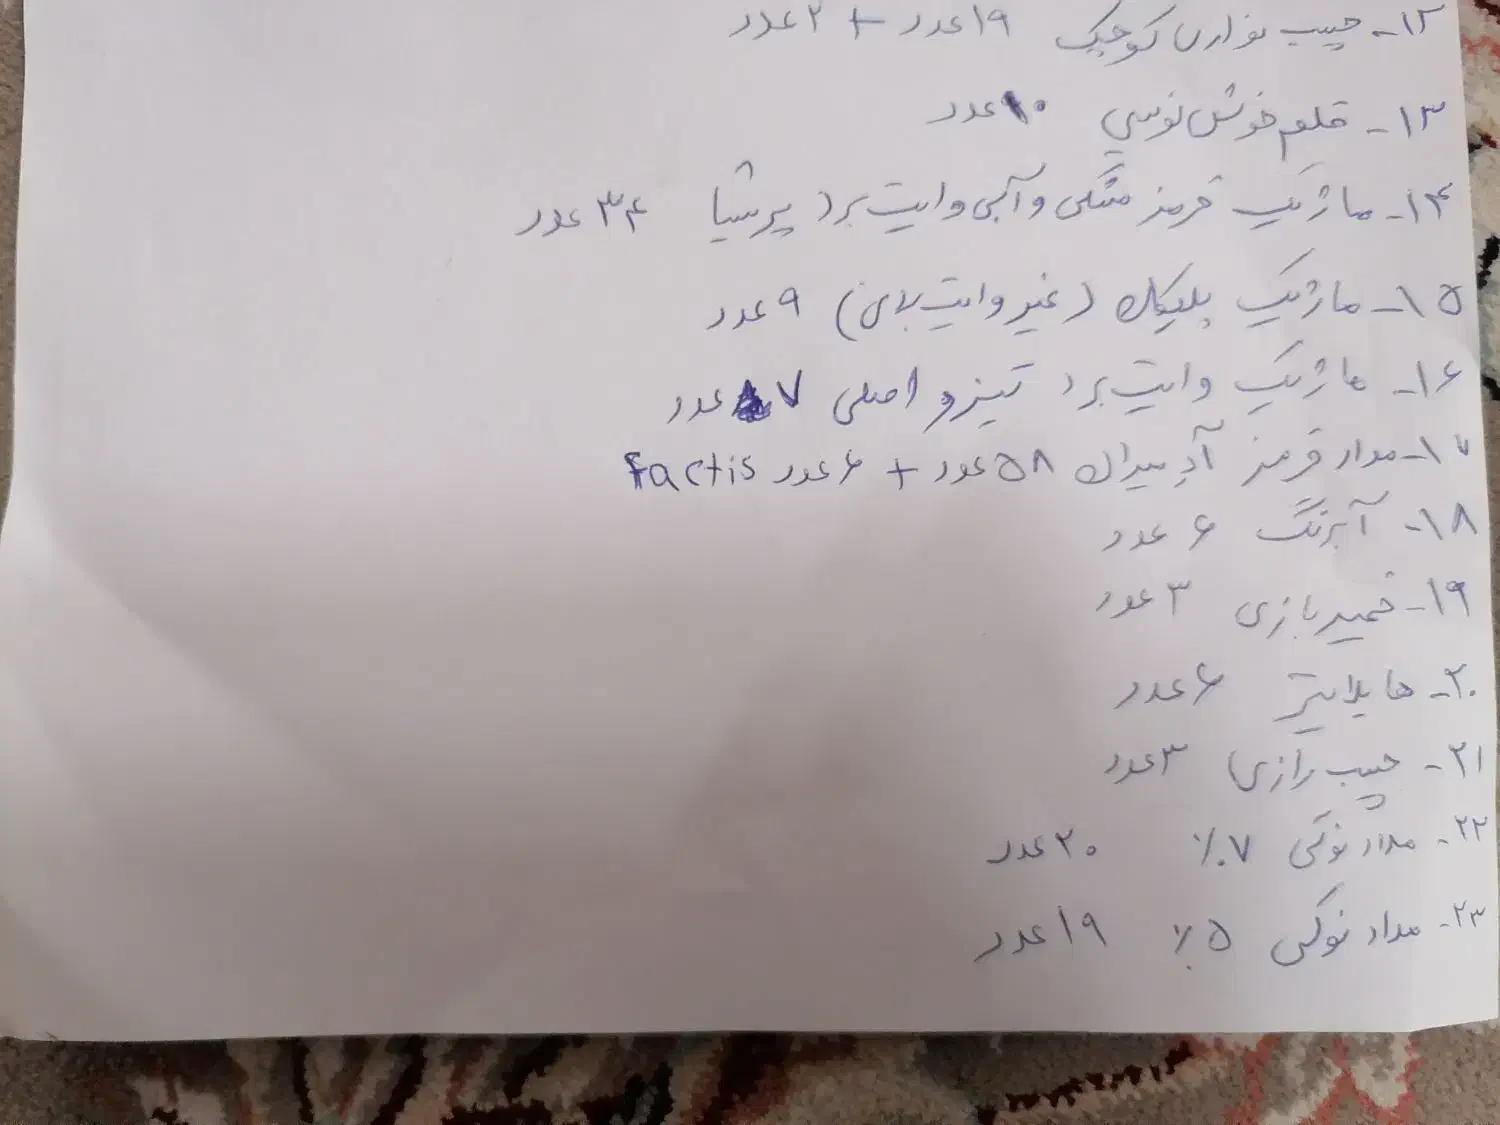 ۱۲- چسب نواری کوچک ۱۹ عدد + ۲ عدد
۱۳- قلم خوش نویسی ۱۰ عدد
۱۴- ماژیک قرمز مشکی و آبی وایت برد پرشیا ۳۴ عدد
۱۵- ماژیک پلیکان (غیر وایت بردی) ۹ عدد
۱۶- ماژیک وایت برد تیزو اصلی ۷ عدد
۱۷- مداد قرمز آدمیرال ۵۸ عدد + ۶ عدد Factis
۱۸- آبرنگ ۶ عدد
۱۹- خمیر بازی ۳ عدد
۲۰- هایلایتر ۶ عدد
۲۱- چسب رازی ۳ عدد
۲۲- مداد نوکی ۰.۷٪ ۲۰ عدد
۲۳- مداد نوکی ۵٪ ۱۹ عدد